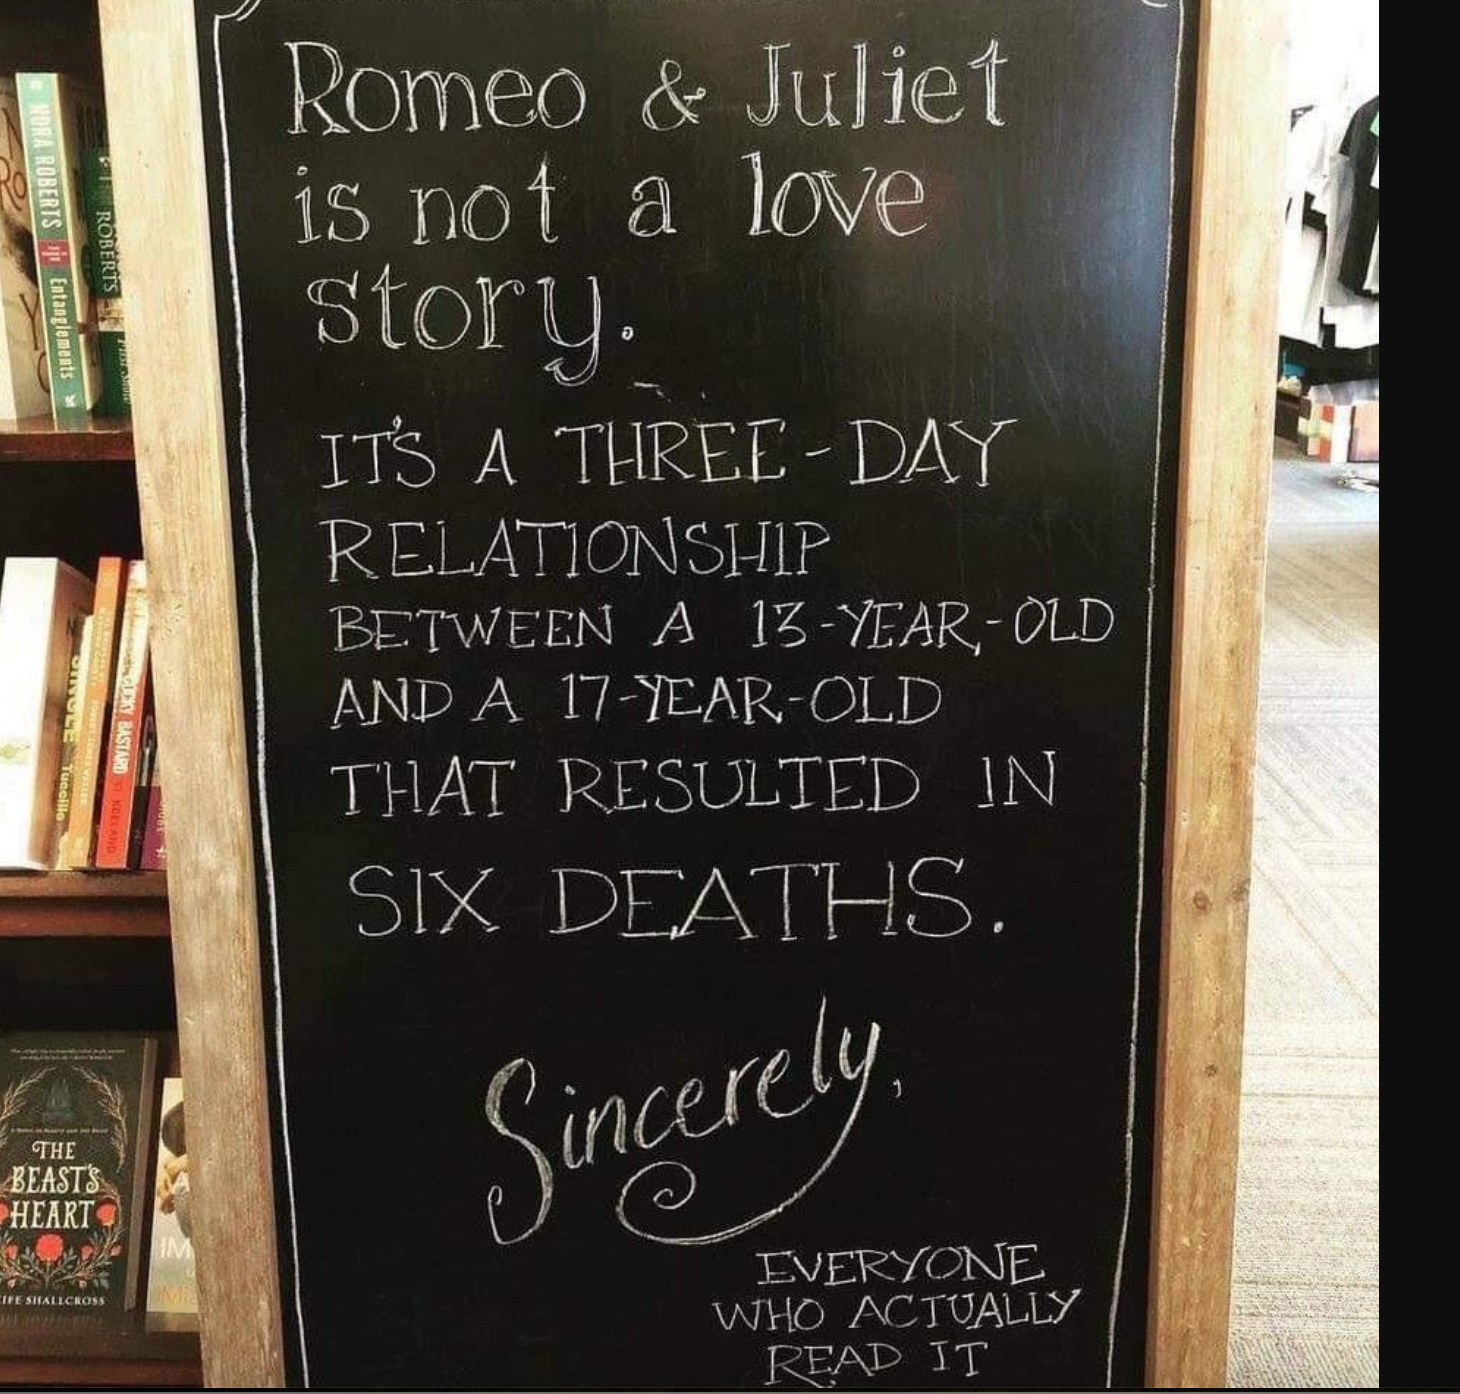 Romeo & Juliet
is not a love
story.
IT'S A THREE-DAY
RELATIONSHIP
BETWEEN A 13-YEAR-OLD
AND A 17-YEAR-OLD
THAT RESULTED IN
SIX DEATHS.
Sincerely,
EVERYONE
WHO ACTUALLY
READ IT
NORA ROBERTS
Entanglements
ROBERTS
Tuccillo
BASTARD
VI KEELAND
THE
BEAST'S
HEART
SHALLCROSS